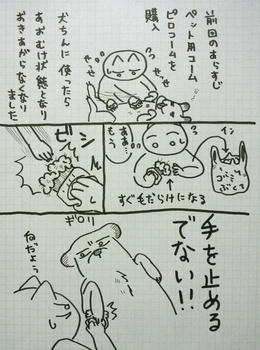 前回のあらすじ
ペット用コーム
ピロコームを
購入
せっせ
せっせ
犬ちんに使ったら
あおむけ状態となり
おきあがらなくなり
ました
ああ…
もう
イン
ゴミ
ぶくろ
すぐ毛だらけになる
ビシィ
ル
ギロリ
手を止める
でない!!
何だよぅ